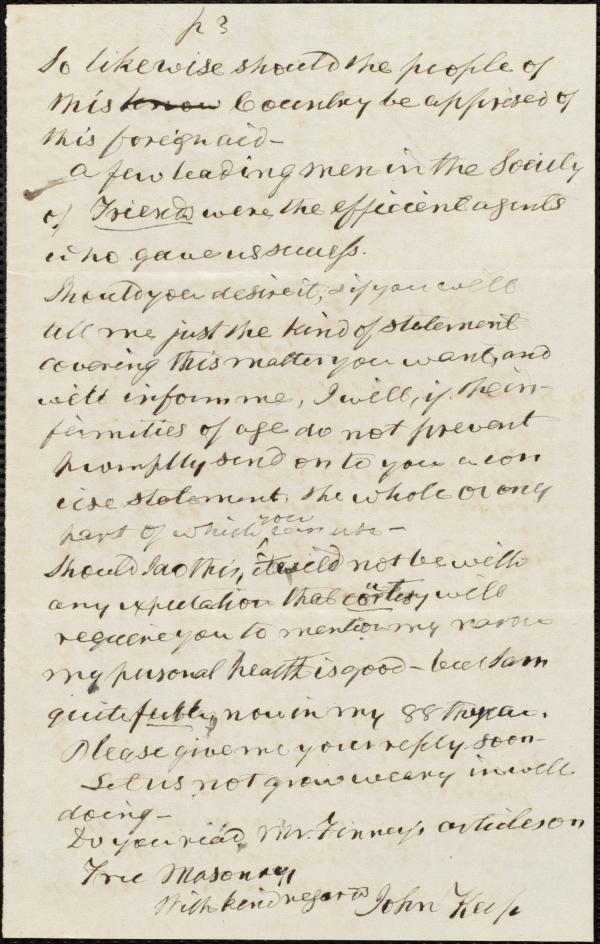 p 3
So likewise should the people of
this know Country be apprised of
this foreign aid-
A few leading men in the Society
of Friends were the efficient agents
who gave us success.
Should you desire it, & if you will
tell me just the kind of statement
covering this matter you want, and
will inform me, I will, if the in-
firmities of age do not prevent
promptly send on to you a con
cise statement, the whole or any
part of which you can use-
Should I do this, it will not be with
any expectation that courtesy will
require you to mention my name
my personal health is good - but I am
quite feeble, now in my 88th year.
Please give me your reply soon-
Let us not grow weary in well
doing-
Do you read Mr. Finney's articles on
Free Masonry
With kind regards John Keep